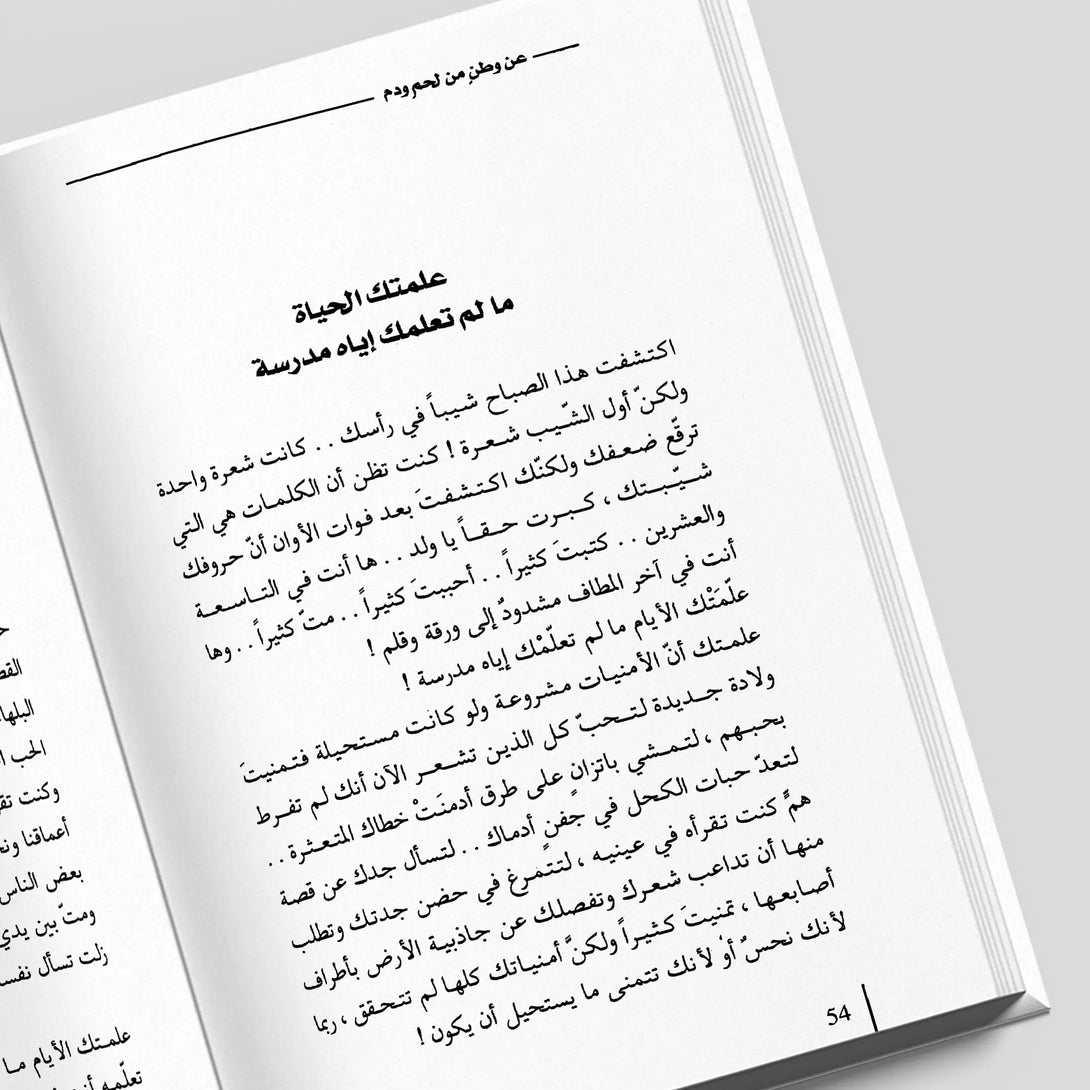 عن وطنٍ من لحم ودم
علمتك الحياة
ما لم تعلمك إياه مدرسة
اكتشفت هذا الصباح شيباً في رأسك . . كانت شعرة واحدة
ولكنّ أول الشّيب شعرة ! كنت تظن أن الكلمات هي التي
ترقّع ضعفك ولكنّك اكتشفتَ بعد فوات الأوان أنّ حروفك
شيّبتك ، كبرت حقاً يا ولد . . ها أنت في التاسعة
والعشرين . . كتبتَ كثيراً . . أحببتَ كثيراً . . متّ كثيراً . . وها
أنت في آخر المطاف مشدودٌ إلى ورقة وقلم !
علّمَتْك الأيام ما لم تعلّمْك إياه مدرسة !
علمتك أنّ الأمنيات مشروعة ولو كانت مستحيلة فتمنيتَ
ولادة جديدة لتحبّ كل الذين تشعر الآن أنك لم تفرط
بحبهم ، لتمشي باتزانٍ على طرق أدمنَتْ خطاك المتعثرة . .
لتعدّ حبات الكحل في جفنٍ أدماك . . لتسأل جدك عن قصة
همٍّ كنت تقرأه في عينيه ، لتتمرغ في حضن جدتك وتطلب
منها أن تداعب شعرك وتفصلك عن جاذبية الأرض بأطراف
أصابعها ، تمنيتَ كثيراً ولكنَّ أمنياتك كلها لم تتحقق ، ربما
لأنك نحسٌ أوْ لأنك تتمنى ما يستحيل أن يكون !
54
البلها
الحب ا
وكنت تقر
أعماقنا ونح
بعض الناس
ومتّ بين يدي
زلت تسأل نفس
علمتك الأيام ما
تعلّمه أن